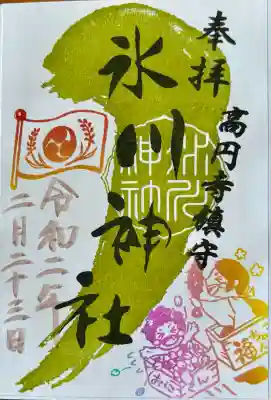 奉拝
高円寺鎮守
氷川神社
氷川神社
令和二年
二月二十三日
福
おにさん